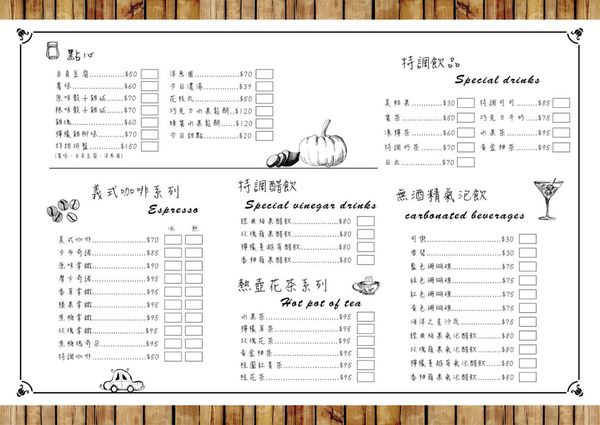 點心
百頁豆腐..............$50
薯條..............$60
原味骰子雞塊..............$70
辣味骰子雞塊..............$70
雞塊..............$60
檸檬雞柳條..............$70
好拼拼盤..............$150
(薯條、百頁豆腐、洋蔥圈)
洋蔥圈..............$70
今日濃湯..............$39
花枝丸..............$50
巧克力水果鬆餅..............$120
蜂蜜水果鬆餅..............$120
今日甜點..............$20
特調飲品
Special drinks
美粒果..............$30
奶茶..............$50
凍檸茶..............$60
特調奶茶..............$70
日出..............$70
特調可可..............$85
巧克力牛奶..............$75
水果茶..............$95
黃金柚茶..............$95
義式咖啡系列
Espresso
冰 熱
美式咖啡..............$70
卡布奇諾..............$85
原味拿鐵..............$90
摩卡奇諾..............$95
香草拿鐵..............$95
榛果拿鐵..............$95
焦糖拿鐵..............$95
玫瑰拿鐵..............$95
焦糖瑪奇朵..............$95
特調咖啡..............$50
特調醋飲
Special vinegar drinks
經典梅果醋飲..............$80
玫瑰蘋果醋飲..............$80
檸檬蔓越莓醋飲..............$80
香柚蘋果醋飲..............$80
熱壺花茶系列
Hot pot of tea
水果茶..............$95
檸檬草茶..............$95
玫瑰花茶..............$95
黃金柚茶..............$95
桂圓紅棗茶..............$95
桂花茶..............$95
無酒精氣泡飲
carbonated beverages
可樂..............$30
雪碧..............$30
藍色珊瑚礁..............$75
綠色珊瑚礁..............$75
紅色珊瑚礁..............$75
黃色珊瑚礁..............$75
海洋之星沙瓦..............$75
經典梅果氣泡醋飲..............$80
玫瑰蘋果氣泡醋飲..............$80
檸檬蔓越莓氣泡醋飲..............$80
香柚蘋果氣泡醋飲..............$80